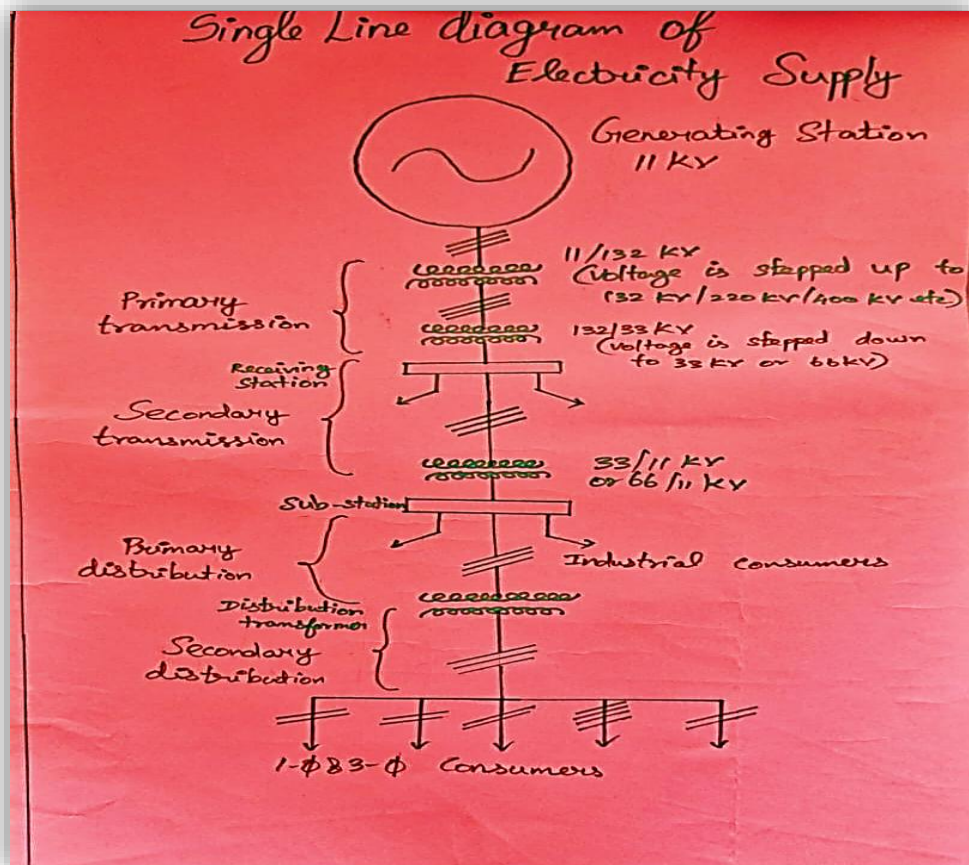 Single Line diagram of
Electricity Supply
Generating Station
11 KV
11/132 KV
(Voltage is stepped up to
132 KV/220 KV/400 KV etc)
Primary
transmission
132/33 KV
(Voltage is stepped down
to 33 KV or 66 KV)
Receiving
Station
Secondary
transmission
33/11 KV
or 66/11 KV
Sub-station
Primary
distribution
Industrial consumers
Distribution
transformer
Secondary
distribution
1-Φ & 3-Φ Consumers